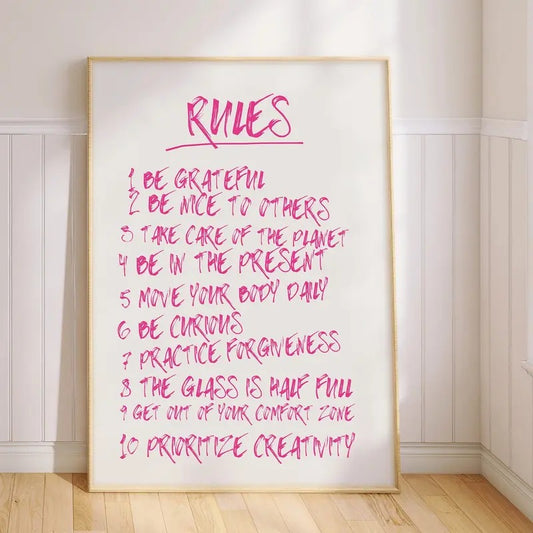 RULES
1 BE GRATEFUL
2 BE NICE TO OTHERS
3 TAKE CARE OF THE PLANET
4 BE IN THE PRESENT
5 MOVE YOUR BODY DAILY
6 BE CURIOUS
7 PRACTICE FORGIVENESS
8 THE GLASS IS HALF FULL
9 GET OUT OF YOUR COMFORT ZONE
10 PRIORITIZE CREATIVITY